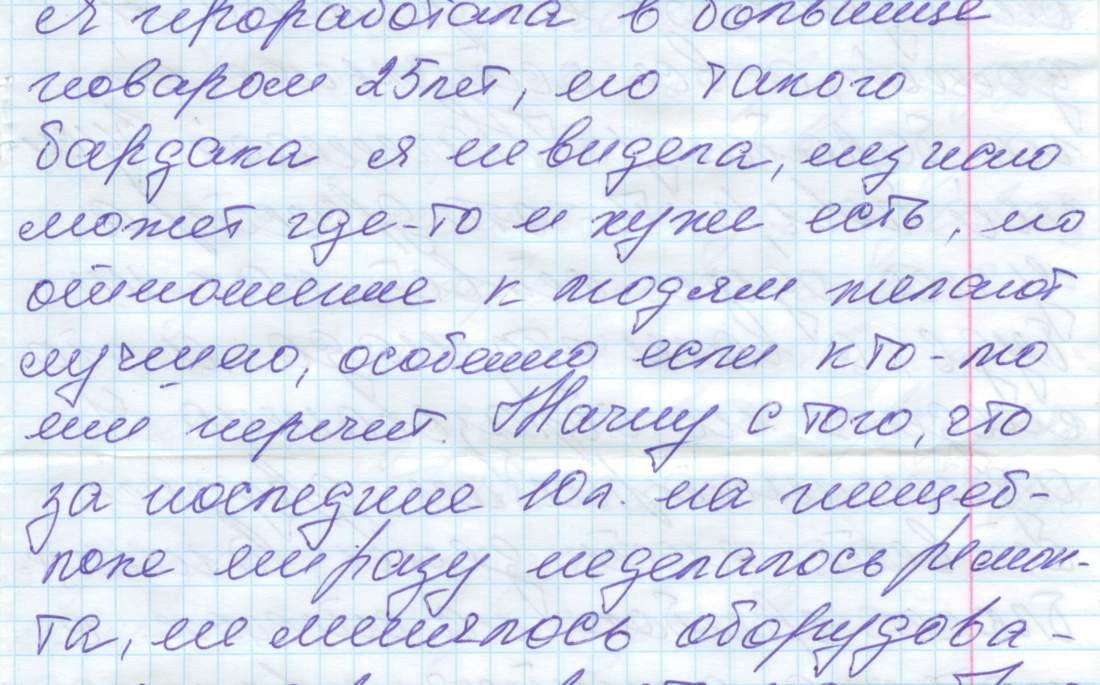 Я проработала в больнице
поваром 25лет, но такого
бардака я не видела, нужно
может где-то и хуже есть, но
отношение к людям желают
лучшего, особенно если кто-то
им перечит. Начну с того, что
за последние 10л. на пищеб-
локе ни разу не делалось ремон-
та, не менялось оборудова-